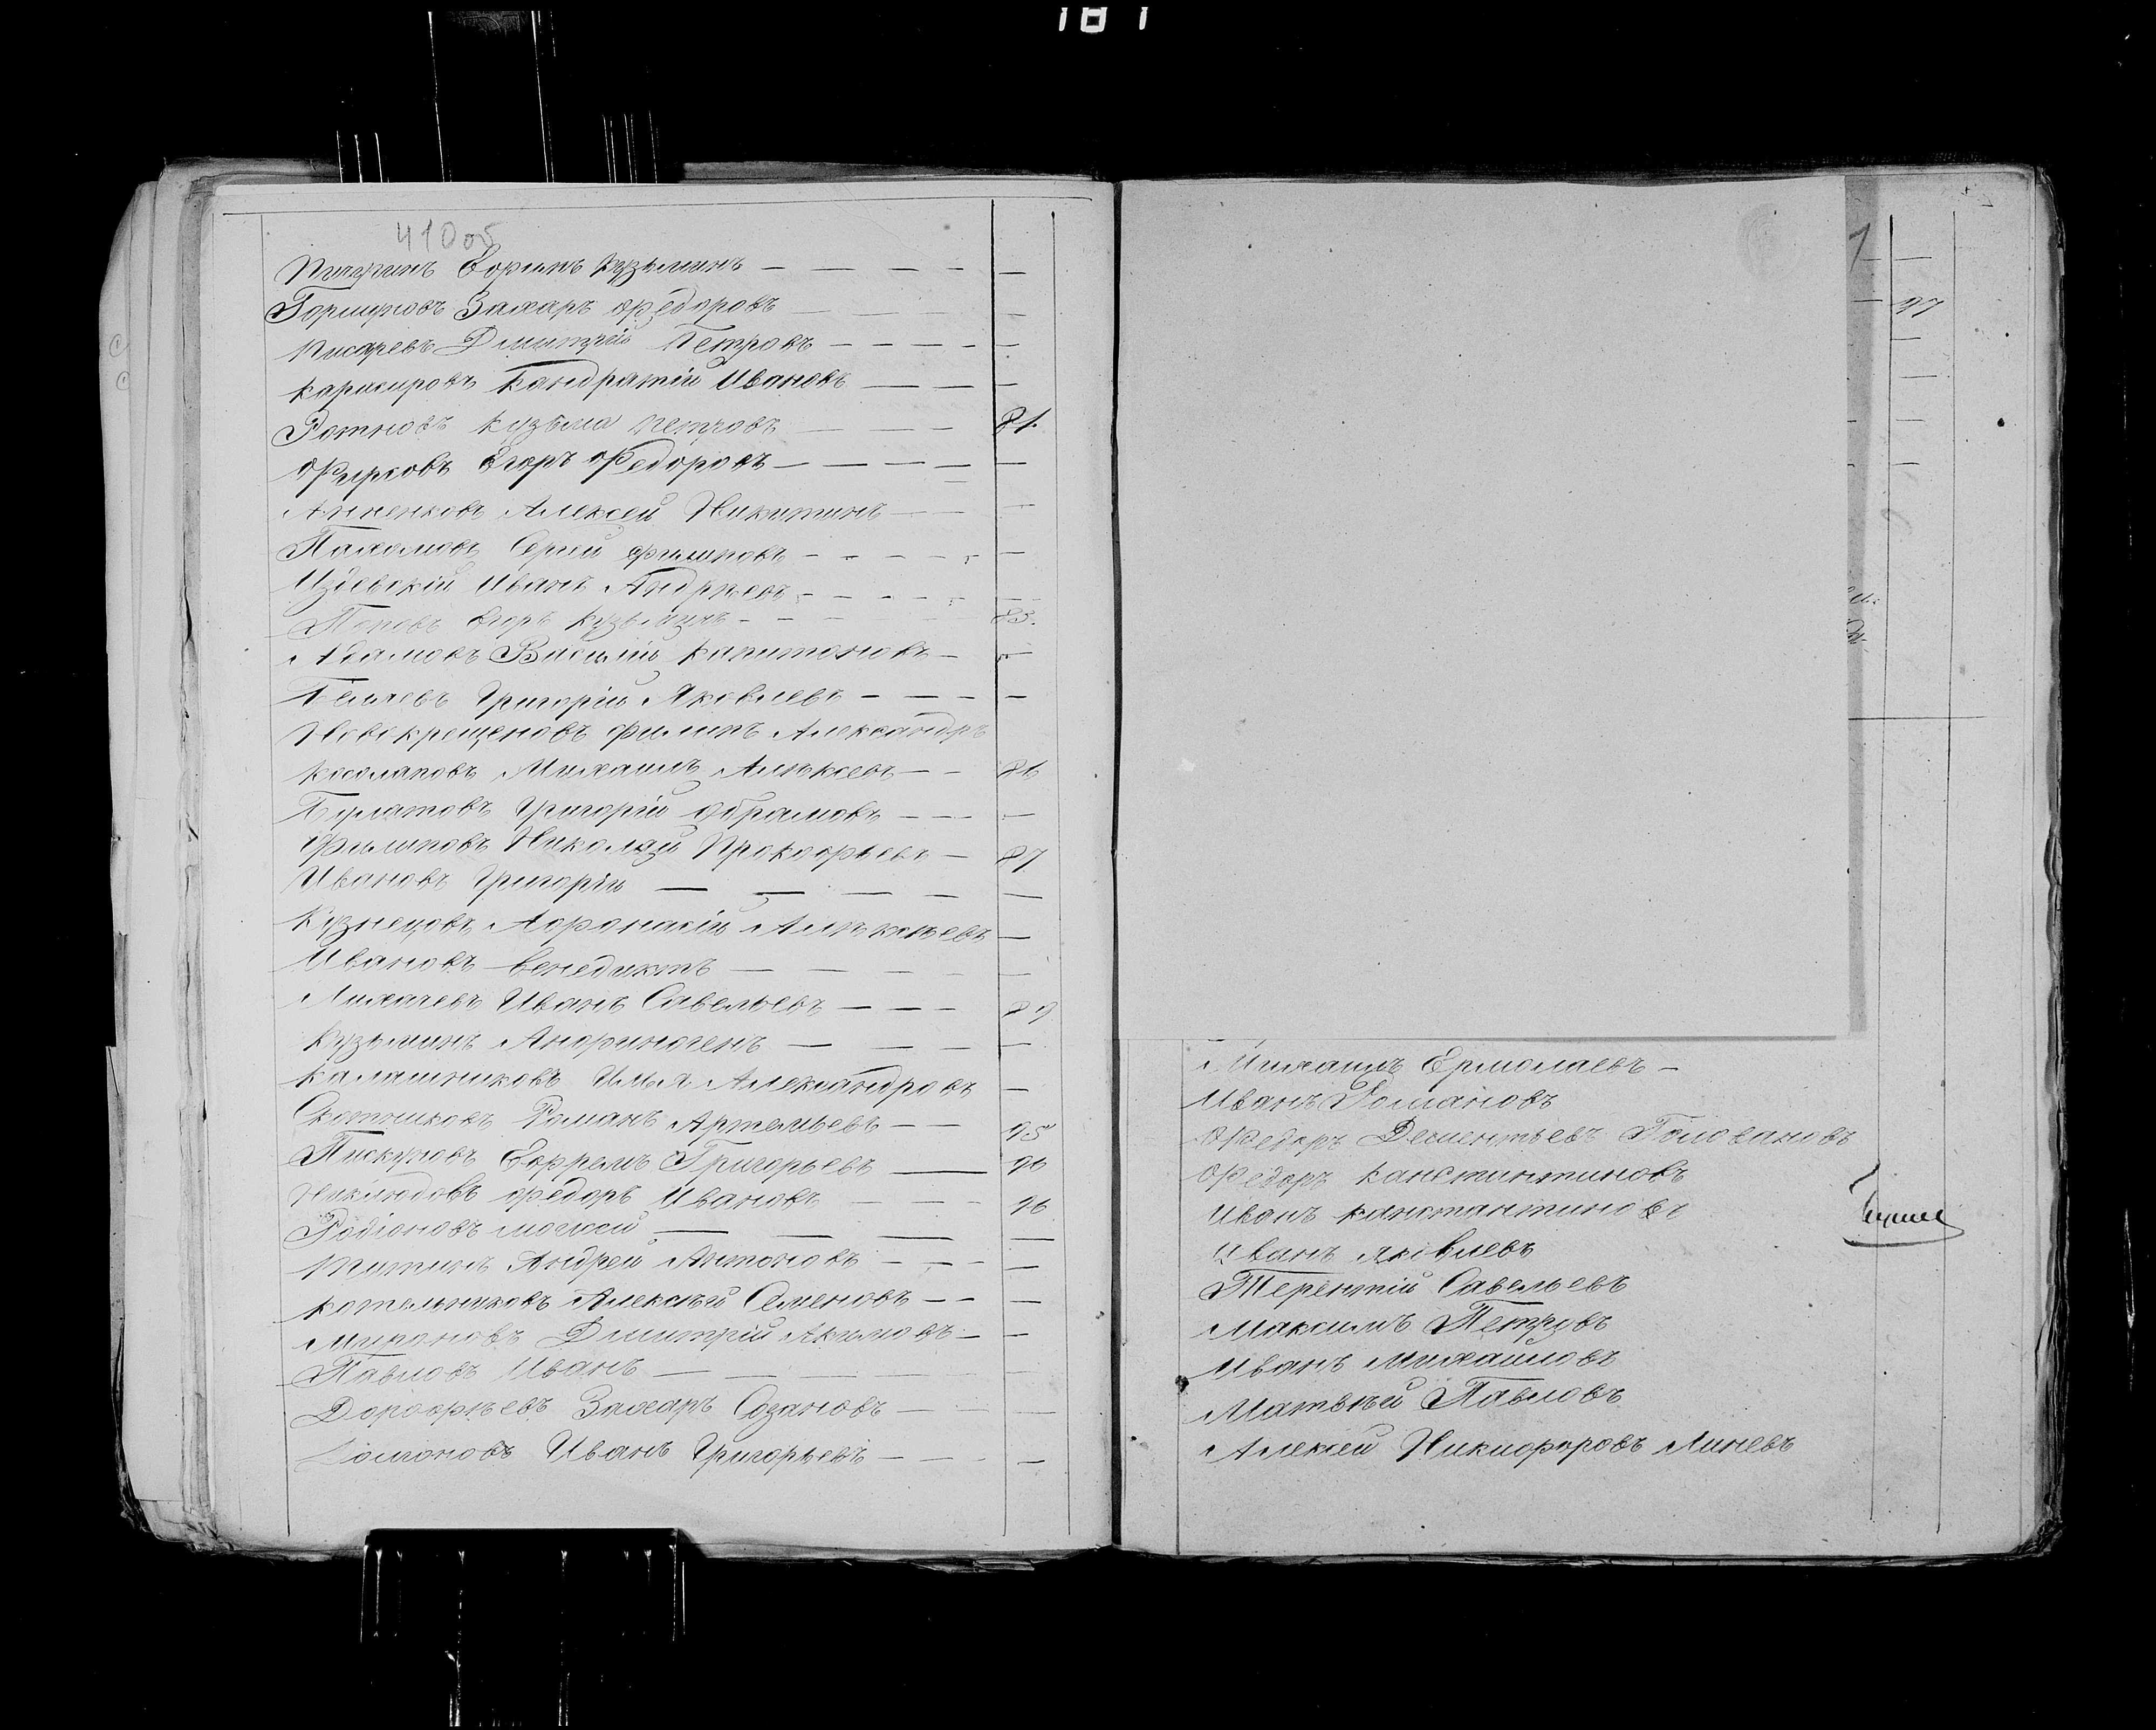 181
41 об
Пичугинъ Ефимъ Кузьминъ — — — — —
Горшуновъ Захаръ Федоровъ — — — —
Писаревъ Дмитрій Петровъ — — — — —
Кандратій Ивановъ — — —
Кузьма Петровъ — — — 81.
Фирсовъ Егоръ Федоровъ — — — — —
Анненковъ Алексей Никитинъ — — —
Пахомовъ Сергей Филиповъ — — — — —
Иванъ Андреевъ — — — — —
Поповъ Егоръ Кузьминъ — — — 85.
Адамовъ Василій Капитоновъ — —
Беляевъ Григорій Яковлевъ — — — —
Новокрещеновъ Филипъ Александръ
Косолаповъ Михаилъ Алексевъ — — 86
Булатовъ Григорій Абрамовъ — — — —
Филиповъ Николай Прокофьевъ — 87
Ивановъ Григорій — — — — —
Кузнецовъ Афонасій Алексеевъ —
Ивановъ Венедиктъ — — — — —
Лихачевъ Иванъ Савельевъ — — — 89
Кузьминъ Анфиногенъ — — — —
Калашниковъ Илья Александровъ —
Романъ Артемьевъ — — 95
Пискуновъ Ефремъ Григорьевъ — 96
Неклюдовъ Федоръ Ивановъ — — — 96
Родіоновъ Могсей — — — — —
Питинъ Андрей Антоновъ — — — —
Котельниковъ Алексей Семеновъ — — —
Мироновъ Дмитрій Акимовъ — —
Павловъ Иванъ — — — — — —
Дорофеевъ Захаръ Созановъ — — —
Иванъ Григорьевъ — — — —
97
Михаилъ Ермолаевъ —
Иванъ Романовъ
Федоръ Дементьевъ Головановъ
Федоръ Канстантиновъ
Иванъ Канстантиновъ
Иванъ Яковлевъ
Терентій Савельевъ
Максимъ Петровъ
Иванъ Михайловъ
Матвей Павловъ
Алексей Никифоровъ Линевъ